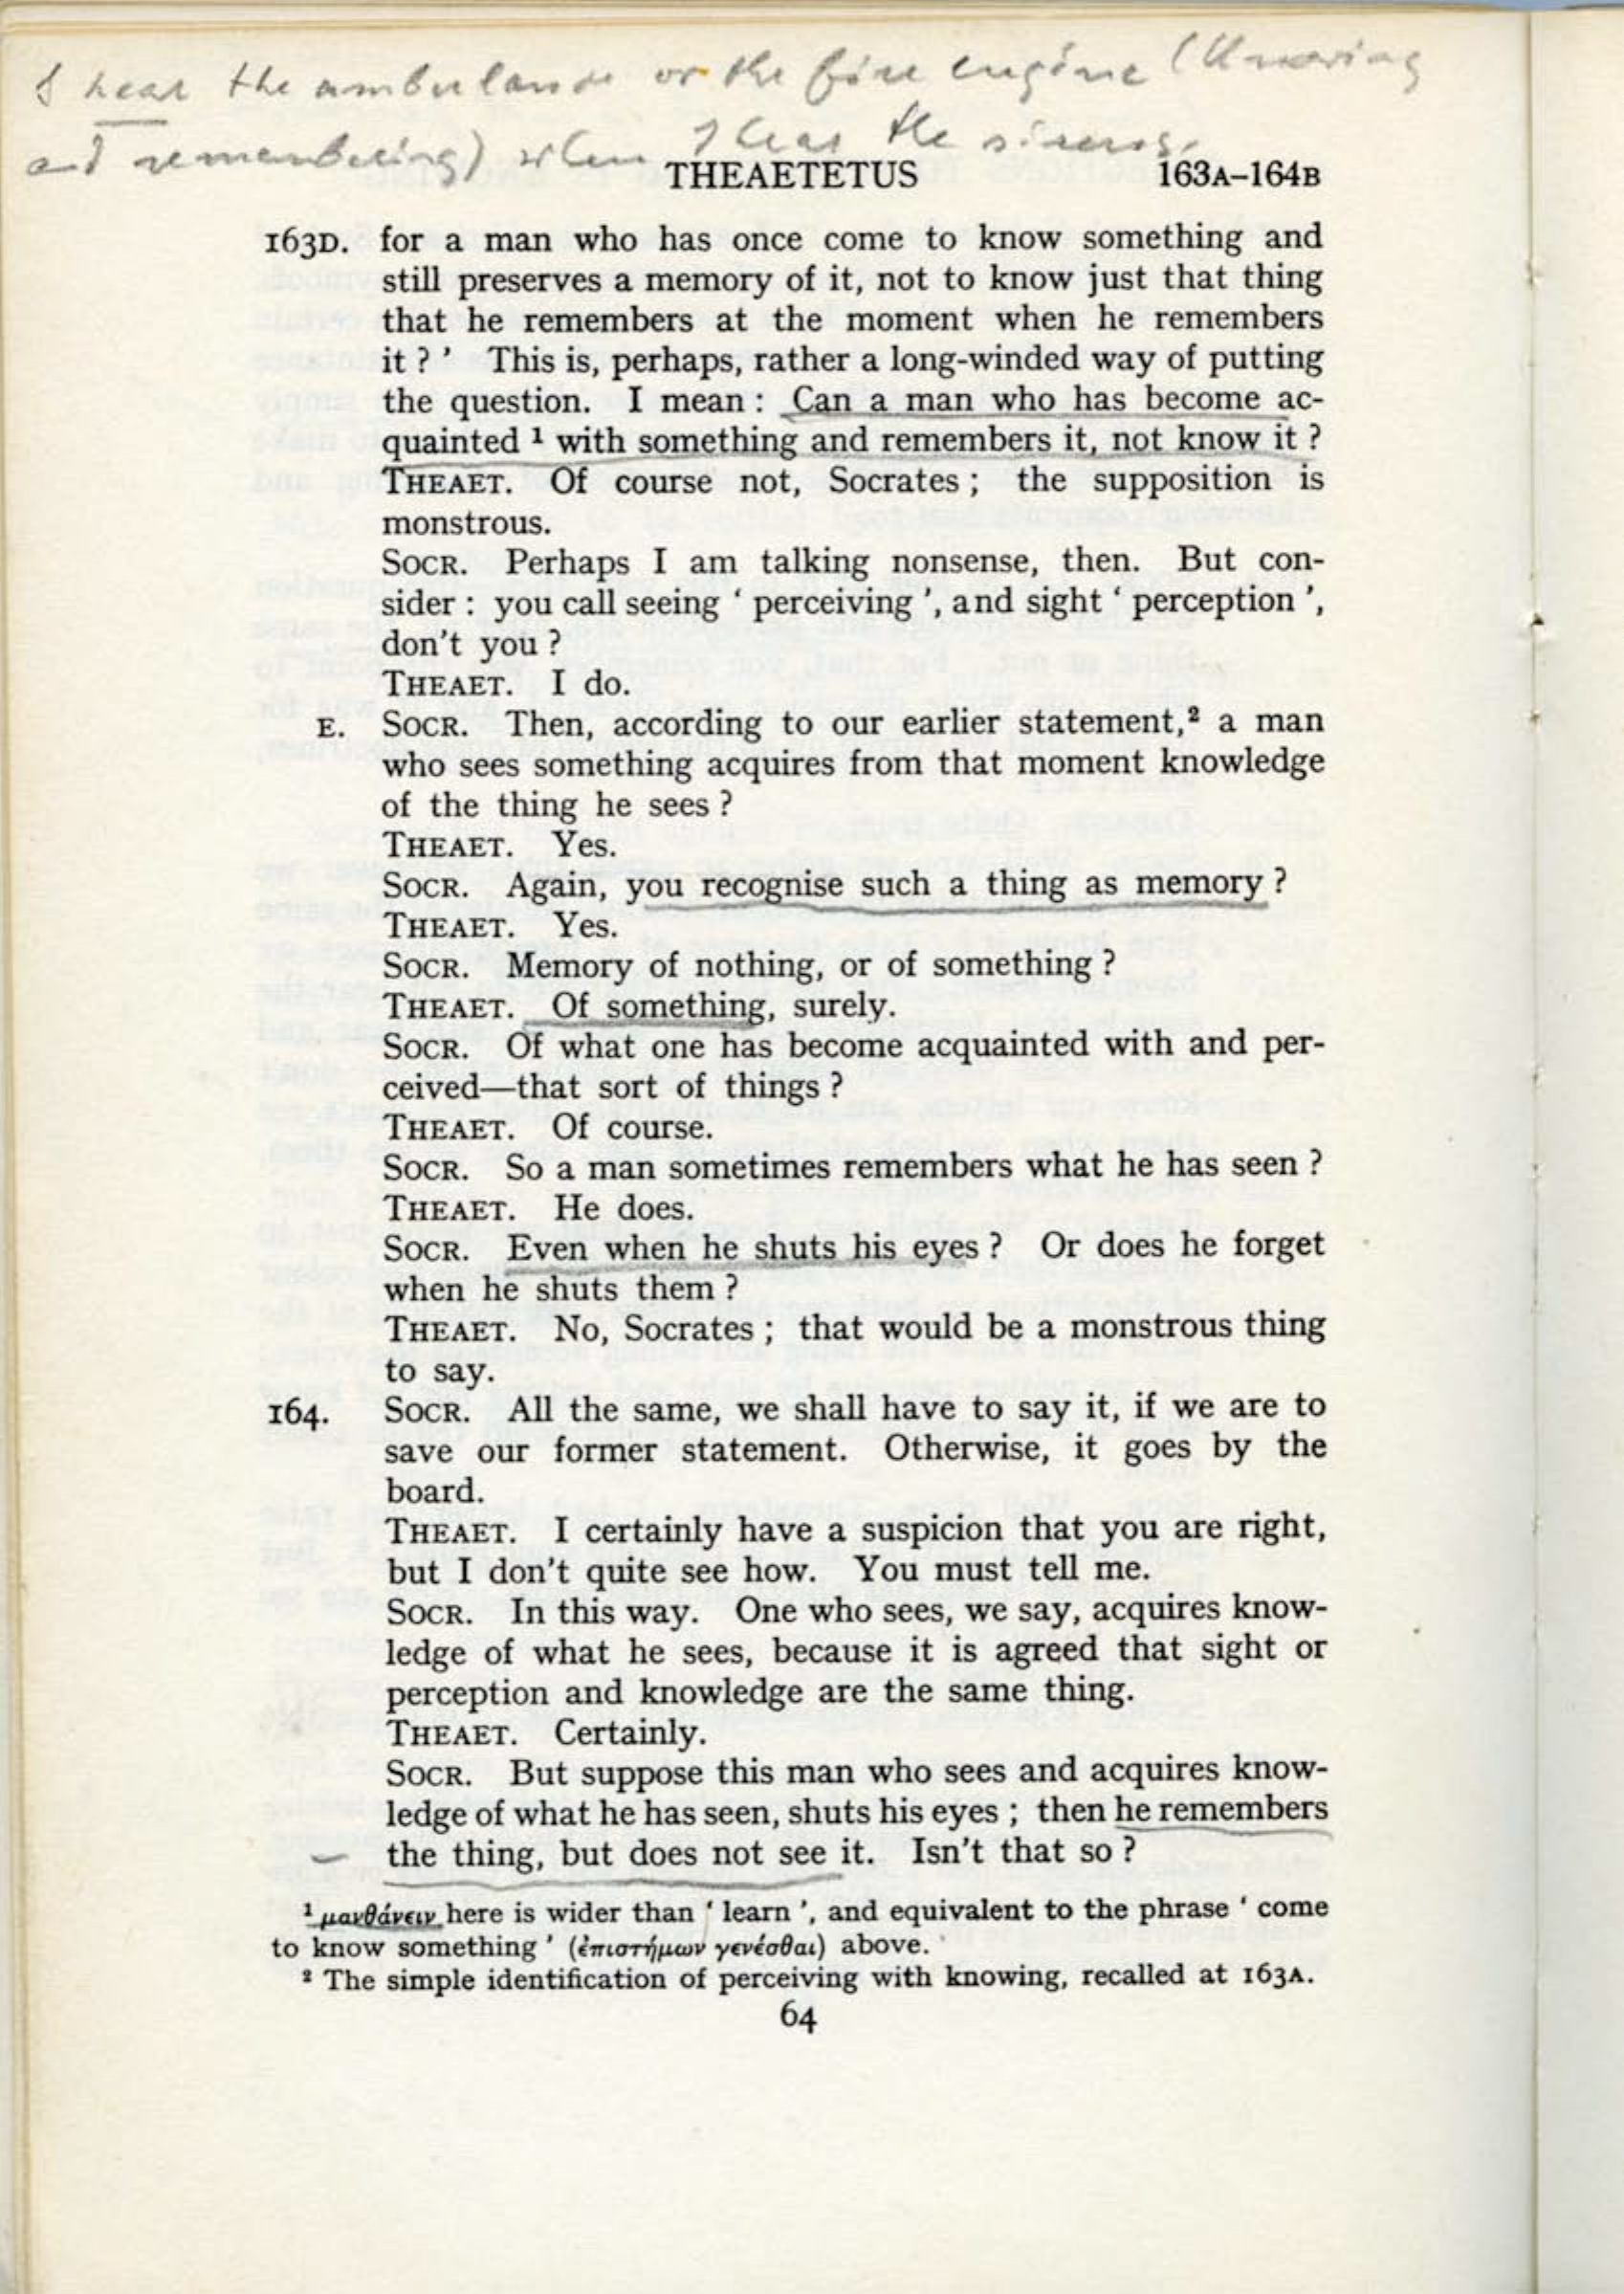 I hear the ambulance or the fire engine (Knowing
and remembering) when I hear the sirens.
THEAETETUS 163A–164B
163D. for a man who has once come to know something and
still preserves a memory of it, not to know just that thing
that he remembers at the moment when he remembers
it ? ’ This is, perhaps, rather a long-winded way of putting
the question. I mean : Can a man who has become ac-
quainted ¹ with something and remembers it, not know it ?
THEAET. Of course not, Socrates ; the supposition is
monstrous.
SOCR. Perhaps I am talking nonsense, then. But con-
sider : you call seeing ‘ perceiving ’, and sight ‘ perception ’,
don't you ?
THEAET. I do.
E. SOCR. Then, according to our earlier statement,² a man
who sees something acquires from that moment knowledge
of the thing he sees ?
THEAET. Yes.
SOCR. Again, you recognise such a thing as memory ?
THEAET. Yes.
SOCR. Memory of nothing, or of something ?
THEAET. Of something, surely.
SOCR. Of what one has become acquainted with and per-
ceived—that sort of things ?
THEAET. Of course.
SOCR. So a man sometimes remembers what he has seen ?
THEAET. He does.
SOCR. Even when he shuts his eyes ? Or does he forget
when he shuts them ?
THEAET. No, Socrates ; that would be a monstrous thing
to say.
164. SOCR. All the same, we shall have to say it, if we are to
save our former statement. Otherwise, it goes by the
board.
THEAET. I certainly have a suspicion that you are right,
but I don't quite see how. You must tell me.
SOCR. In this way. One who sees, we say, acquires know-
ledge of what he sees, because it is agreed that sight or
perception and knowledge are the same thing.
THEAET. Certainly.
SOCR. But suppose this man who sees and acquires know-
ledge of what he has seen, shuts his eyes ; then he remembers
the thing, but does not see it. Isn't that so ?
¹ μανθάνειν here is wider than ‘ learn ’, and equivalent to the phrase ‘ come
to know something ’ (ἐπιστήμων γενέσθαι) above.
² The simple identification of perceiving with knowing, recalled at 163A.
64